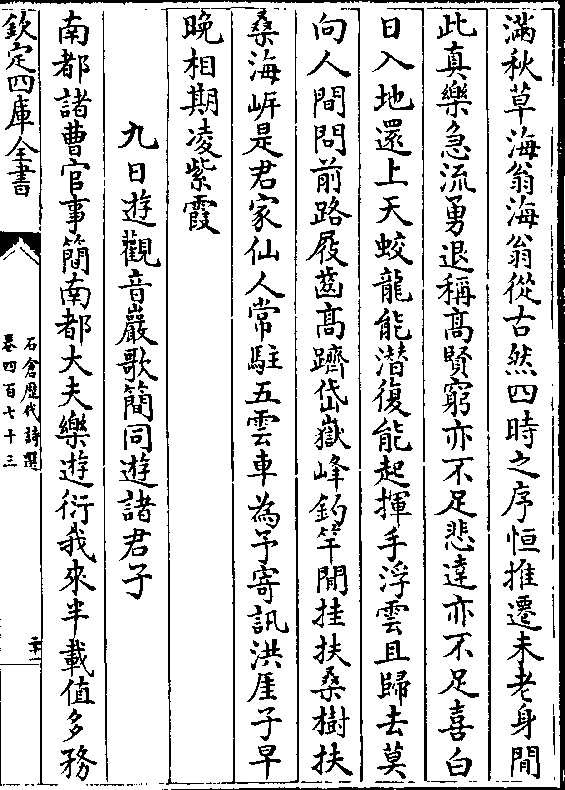 滿秋草海翁海翁從古然四時之序恒推遷未老身閒
此真樂急流勇退稱髙賢窮亦不足悲達亦不足喜白
日入地還上天蛟龍能潜復能起揮手浮雲且歸去莫
向人間問前路屐齒髙躋岱嶽峰釣竿閒挂扶桑樹扶
桑海㟁是君家仙人常駐五雲車為予寄訊洪厓子早
晚相期凌紫霞
九日遊觀音巖歌簡同遊諸君子
南都諸曹官事簡南都大夫樂遊衍我來半載值多務
欽定四庫全書
石倉歷代詩選
卷四百七十三
二十一